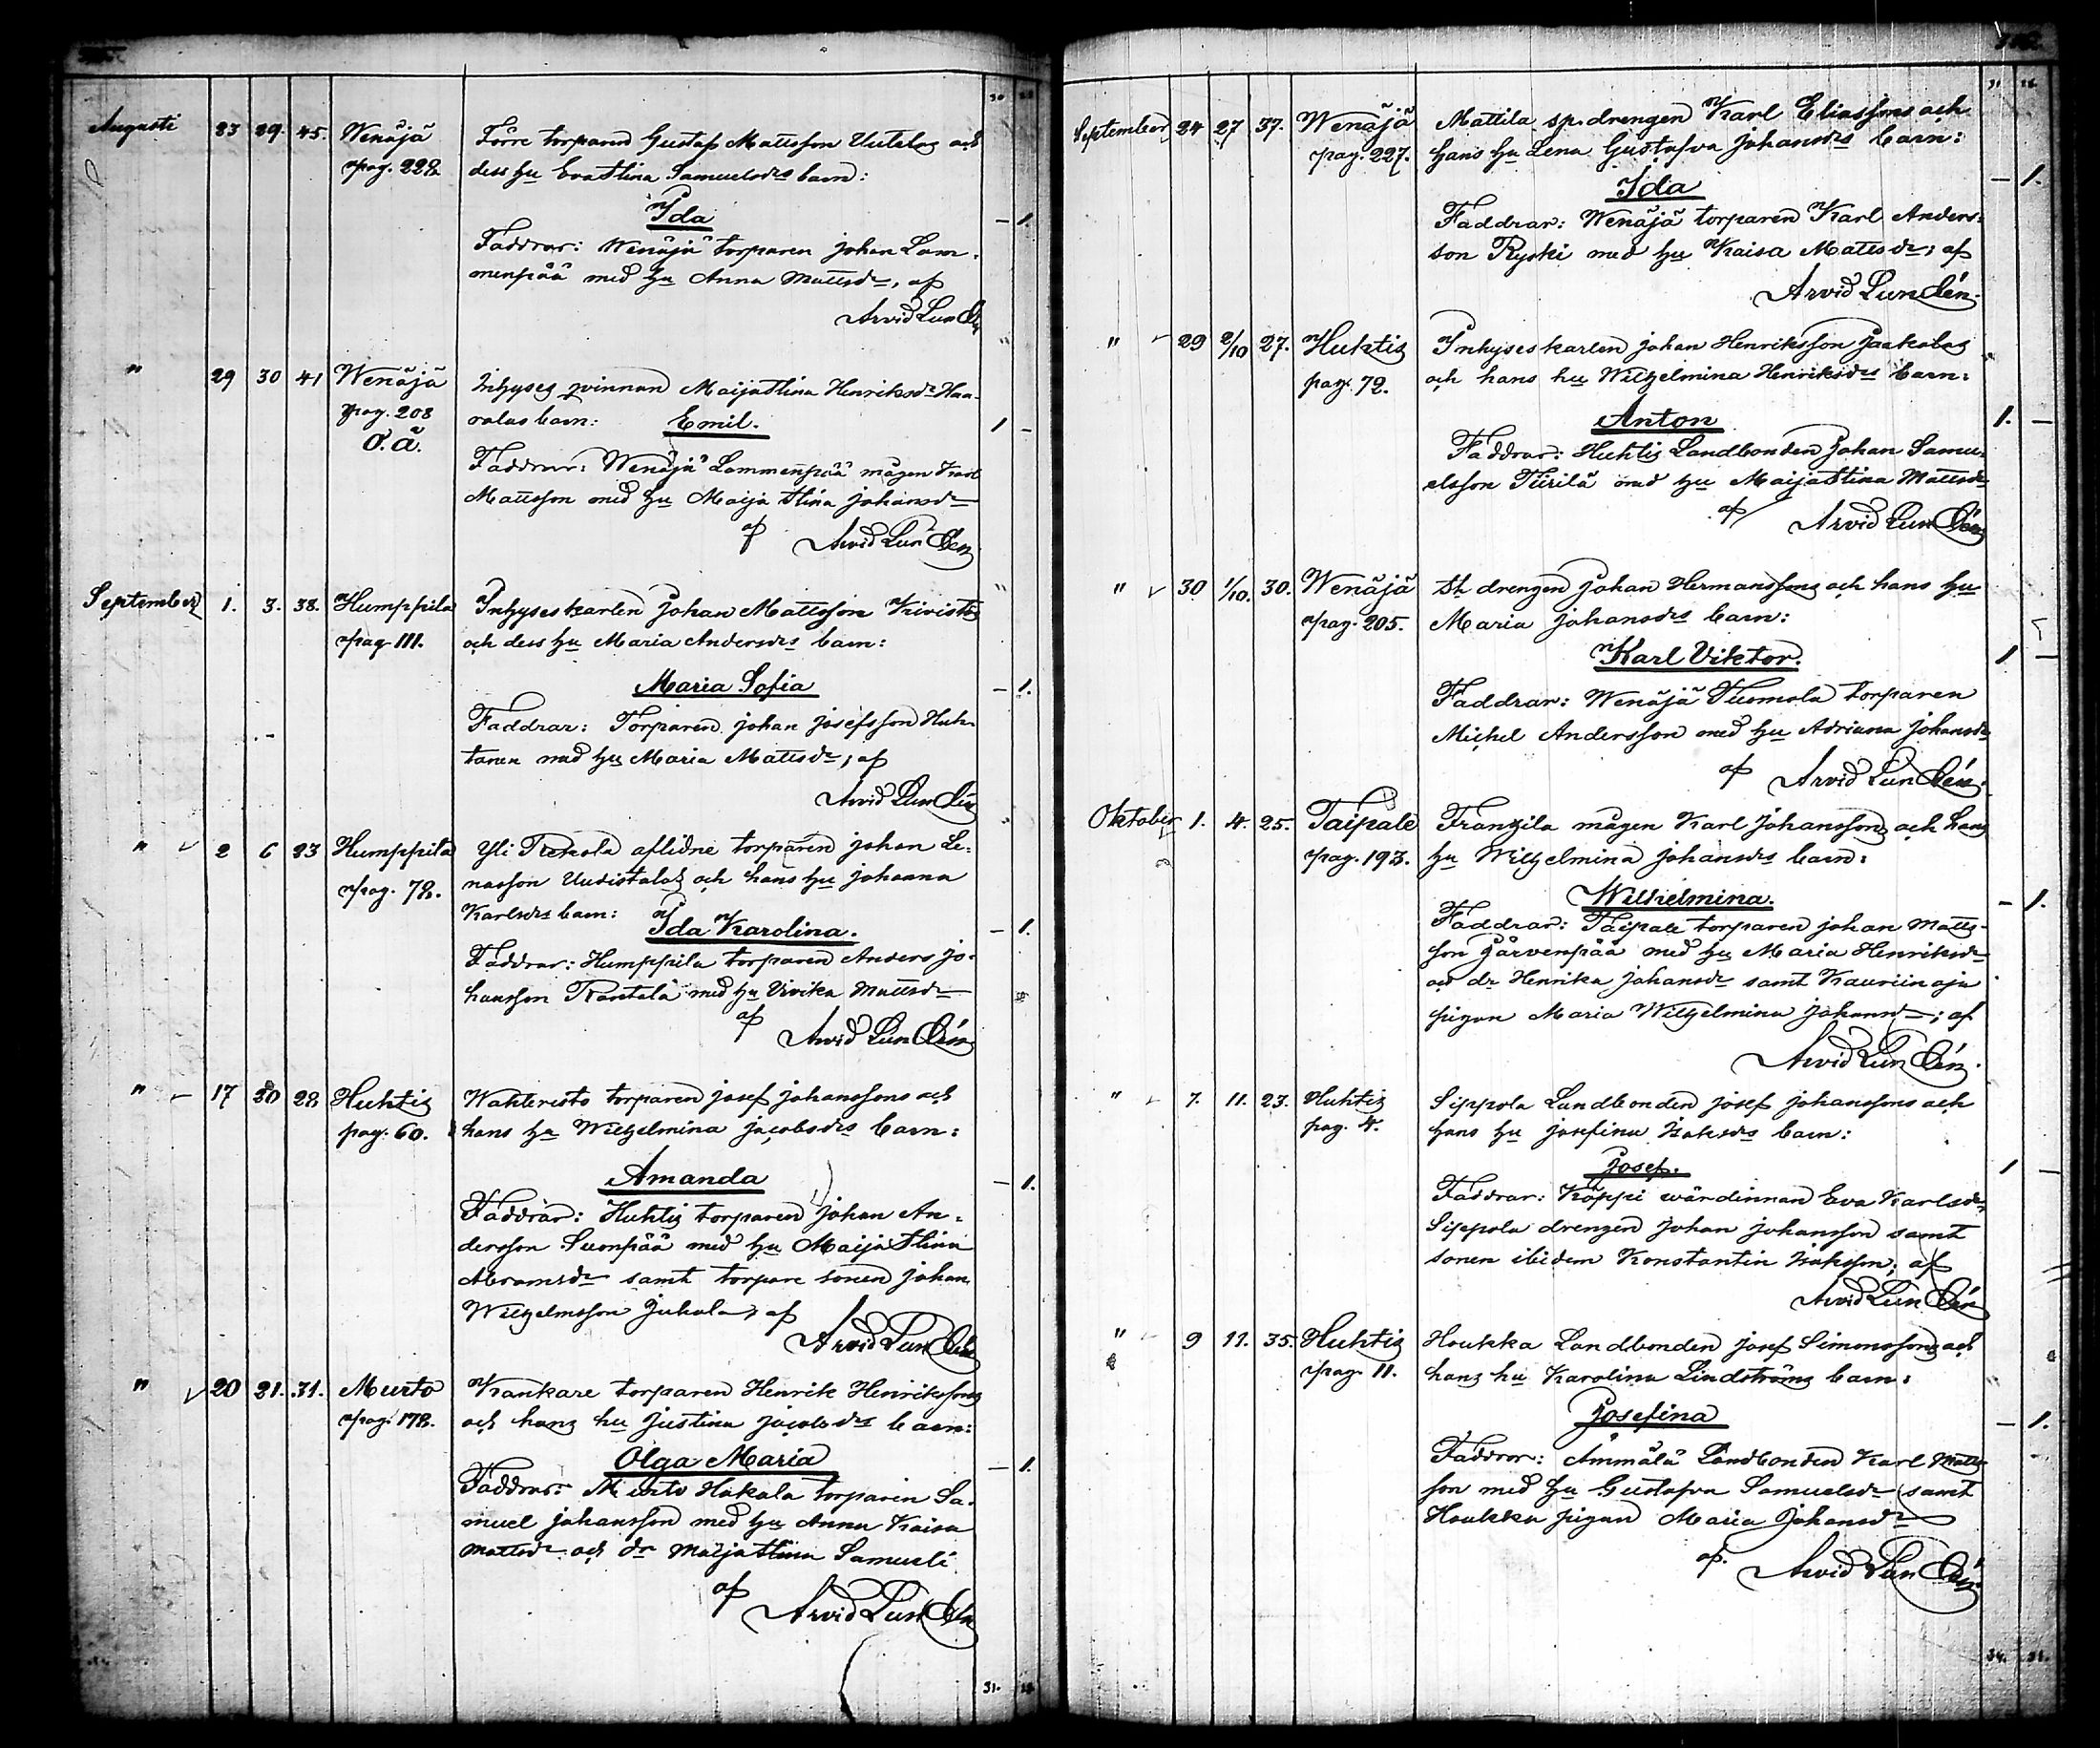 Augusti 23 29. 45. Wenäjä Förre torparen Gustaf Mattsson Uutelas och
pag. 228. dess hu Eva Stina Samuelsdrs barn:
Ida — 1.
Faddrar: Wenäjä torparen Johan Lam-
menpää med hu Anna Mattsdr, af
Arvid Lundén
" 29 30 41 Wenäjä Inhyses qvinnan Maija Stina Henriksdr Haa-
pag. 208 ralas barn: Emil. 1 —
O. ä. Faddrar: Wenäjä Lammenpää mågen Karl
Mattsson med hu Maija Stina Johansdr
af Arvid Lundén
September 1. 3. 38. Humppila Inhyseskarlen Johan Mattsson Kivistös
pag. 111. och dess hu Maria Andersdrs barn:
Maria Sofia — 1.
Faddrar: Torparen Johan Josefsson Huh-
tanen med hu Maria Mattsdr; af
Arvid Lundén
" 2 6 23 Humppila Yli aflidne torparen Johan Le-
pag. 78. nasson Uudistalos och hans hu Johanna
Karlsdrs barn: Ida Karolina. — 1.
Faddrar: Humppila torparen Anders Jo-
hansson Rantala med hu Vivika Mattsdr
af Arvid Lundén
" 17 20 28 Huhtis Wahteristo torparen Josef Johanssons och
pag. 60. hans hu Wilhelmina Jacobsdrs barn:
Amanda — 1.
Faddrar: Huhtis torparen Johan An-
dersson Suonpää med hu Maija Stina
Abramsdr samt torpare sonen Johan
Wilhelmsson Juhola; af
Arvid Lundén
" 20 21. 31. Murto Kankare torparen Henrik Henrikssons
pag. 178. och hans hu Justina Jacobsdrs barn:
Olga Maria — 1.
Faddrar: Murto Hakala torparen Sa-
muel Johansson med hu Anna Kaisa
Mattsdr och dr Maija Stina Samueli
af Arvid Lundén
31.
September 24 27 37. Wenäjä Mattila sp. drengen Karl Eliassons och
pag. 227. hans hu Lena Gustafva Johansdrs barn:
Ida — 1.
Faddrar: Wenäjä torparen Karl Anders-
son Ryski med hu Kaisa Mattsdr; af
Arvid Lundén.
" 29 2/10 27. Huhtis Inhyseskarlen Johan Henriksson Jaakolas
pag. 72. och hans hu Wilhelmina Henriksdrs barn:
Anton 1. —
Faddrar: Huhtis Landbonden Johan Samu-
elsson Tiirilä med hu Maija Stina Mattsdr
af Arvid Lundén
" 30 1/10. 30. Wenäjä St. drengen Johan Hermanssons och hans hu
pag. 205. Maria Johansdrs barn:
Karl Viktor. 1 —
Faddrar: Wenäjä Tuomola torparen
Michel Andersson med hu Adriana Johansdr
af Arvid Lundén.
Oktober 1. 4. 25. Taipale Franzila mågen Karl Johanssons och hans
pag. 193. hu Wilhelmina Johansdrs barn:
Wilhelmina. — 1.
Faddrar: Taipale torparen Johan Matts-
son Järvenpää med hu Maria Henriksdr
och dr Henrika Johansdr samt Kauriinoja
pigan Maria Wilhelmina Johansdr; af
Arvid Lundén.
" 7. 11. 23. Huhtis Sippola Landbonden Josef Johanssons och
pag. 4. hans hu Josefina Isaksdrs barn:
Josef. 1 —
Faddrar: Köppi wärdinnan Eva Karlsdr,
Sippola drengen Johan Johansson samt
sonen ibidem Konstantin Isaksson; af
Arvid Lundén
" 9 11. 35. Huhtis Houkka Landbonden Josef Simonssons och
pag. 11. hans hu Karolina Lindströms barn:
Josefina — 1.
Faddrar: Ämmälä Landbonden Karl Matts-
son med hu Gustafva Samuelsdr samt
Houkka pigan Maria Johansdr
af. Arvid Lundén
34.